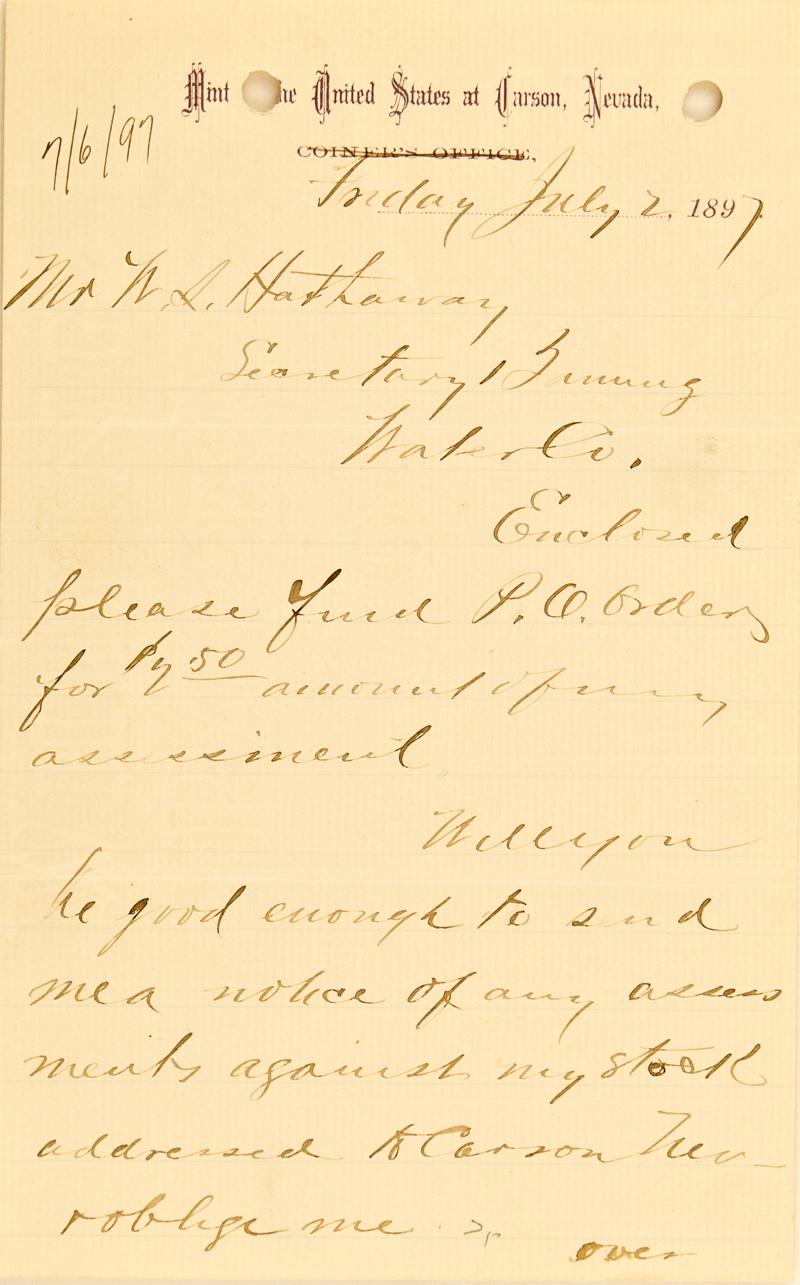 Mint the United States at Carson, Nevada,
7/6/97
COINER'S OFFICE,
Friday July 2, 1897
Mr W. S. Hathaway
Secretary
Water Co.
Enclosed
please find P. O. Order
for $7.50 amount of my
assessment
Will you
be good enough to send
me a notice of any assess
ments against my stock
addressed to Carson Nev
& oblige me
over